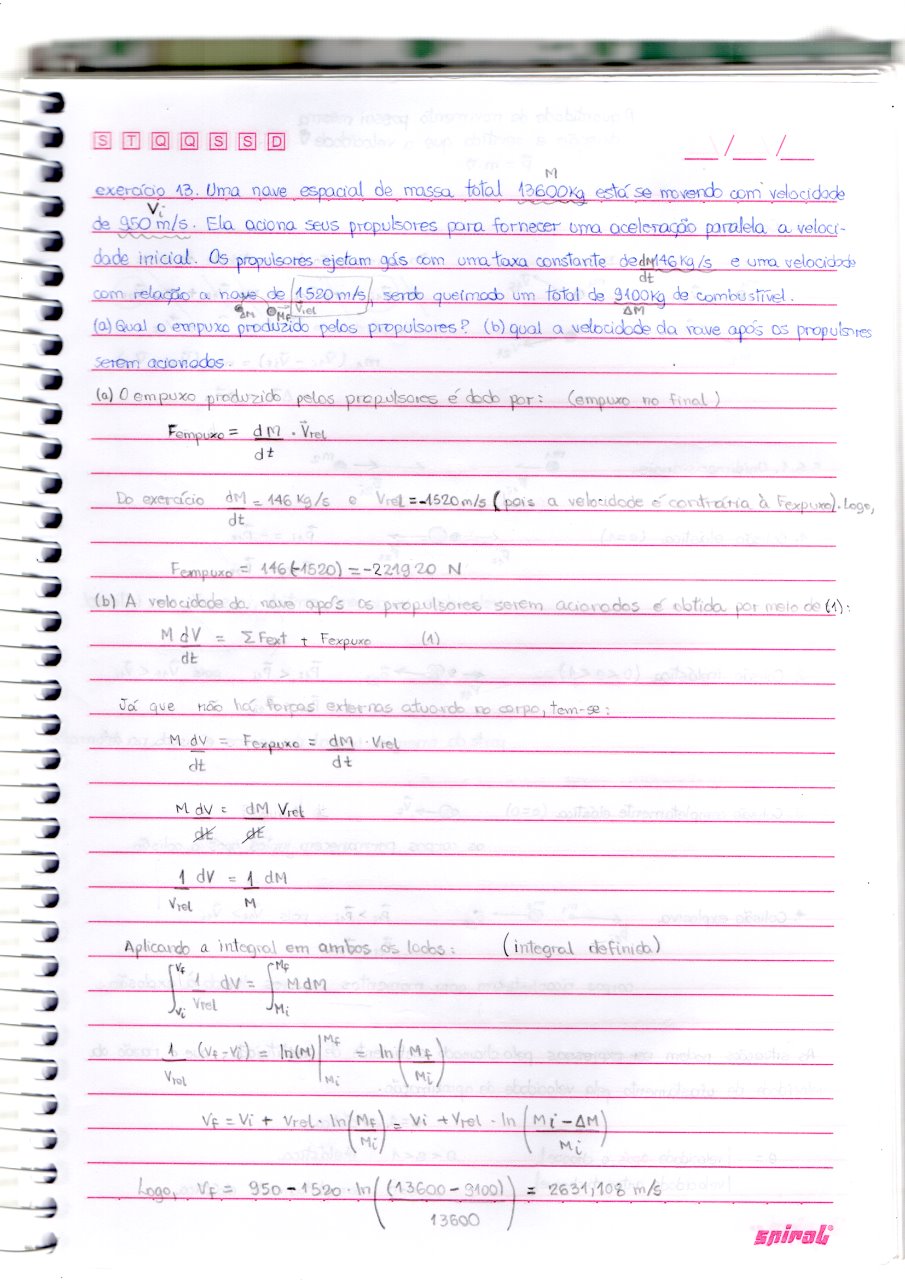 S T Q Q S S D
__/__/__
M
exercício 13. Uma nave espacial de massa total 13600kg está se movendo com velocidade
Vi
de 950 m/s. Ela aciona seus propulsores para fornecer uma aceleração paralela a veloci-
dade inicial. Os propulsores ejetam gás com uma taxa constante de dM/dt 146 kg/s e uma velocidade
com relação a nave de 1520 m/s, sendo queimado um total de 9100kg de combustível.
ΔM Mf Vrel ΔM
(a) Qual o empuxo produzido pelos propulsores? (b) qual a velocidade da nave após os propulsores
serem acionados.
(a) O empuxo produzido pelos propulsores é dado por: (empuxo no final)
Fempuxo = dM/dt · Vrel
Do exercício dM/dt = 146 Kg/s e Vrel = -1520 m/s (pois a velocidade é contrária à Fexpuxo). Logo,
Fempuxo = 146(-1520) = -221920 N
(b) A velocidade da nave após os propulsores serem acionados é obtida por meio de (1):
M dV/dt = ΣFext + Fexpuxo (1)
Já que não há forças externas atuando no corpo, tem-se:
M dV/dt = Fexpuxo = dM/dt · Vrel
M dV/dt = dM/dt Vrel
1/Vrel dV = 1/M dM
Aplicando a integral em ambos os lados: (integral definida)
∫Vi^Vf 1/Vrel dV = ∫Mi^Mf M dM
1/Vrel · (Vf - Vi) = ln(M)|Mi^Mf = ln(Mf/Mi)
Vf = Vi + Vrel · ln(Mf/Mi) = Vi + Vrel · ln(Mi - ΔM/Mi)
Logo, Vf = 950 - 1520 · ln((13600 - 9100)/13600) = 2631,108 m/s
spiral